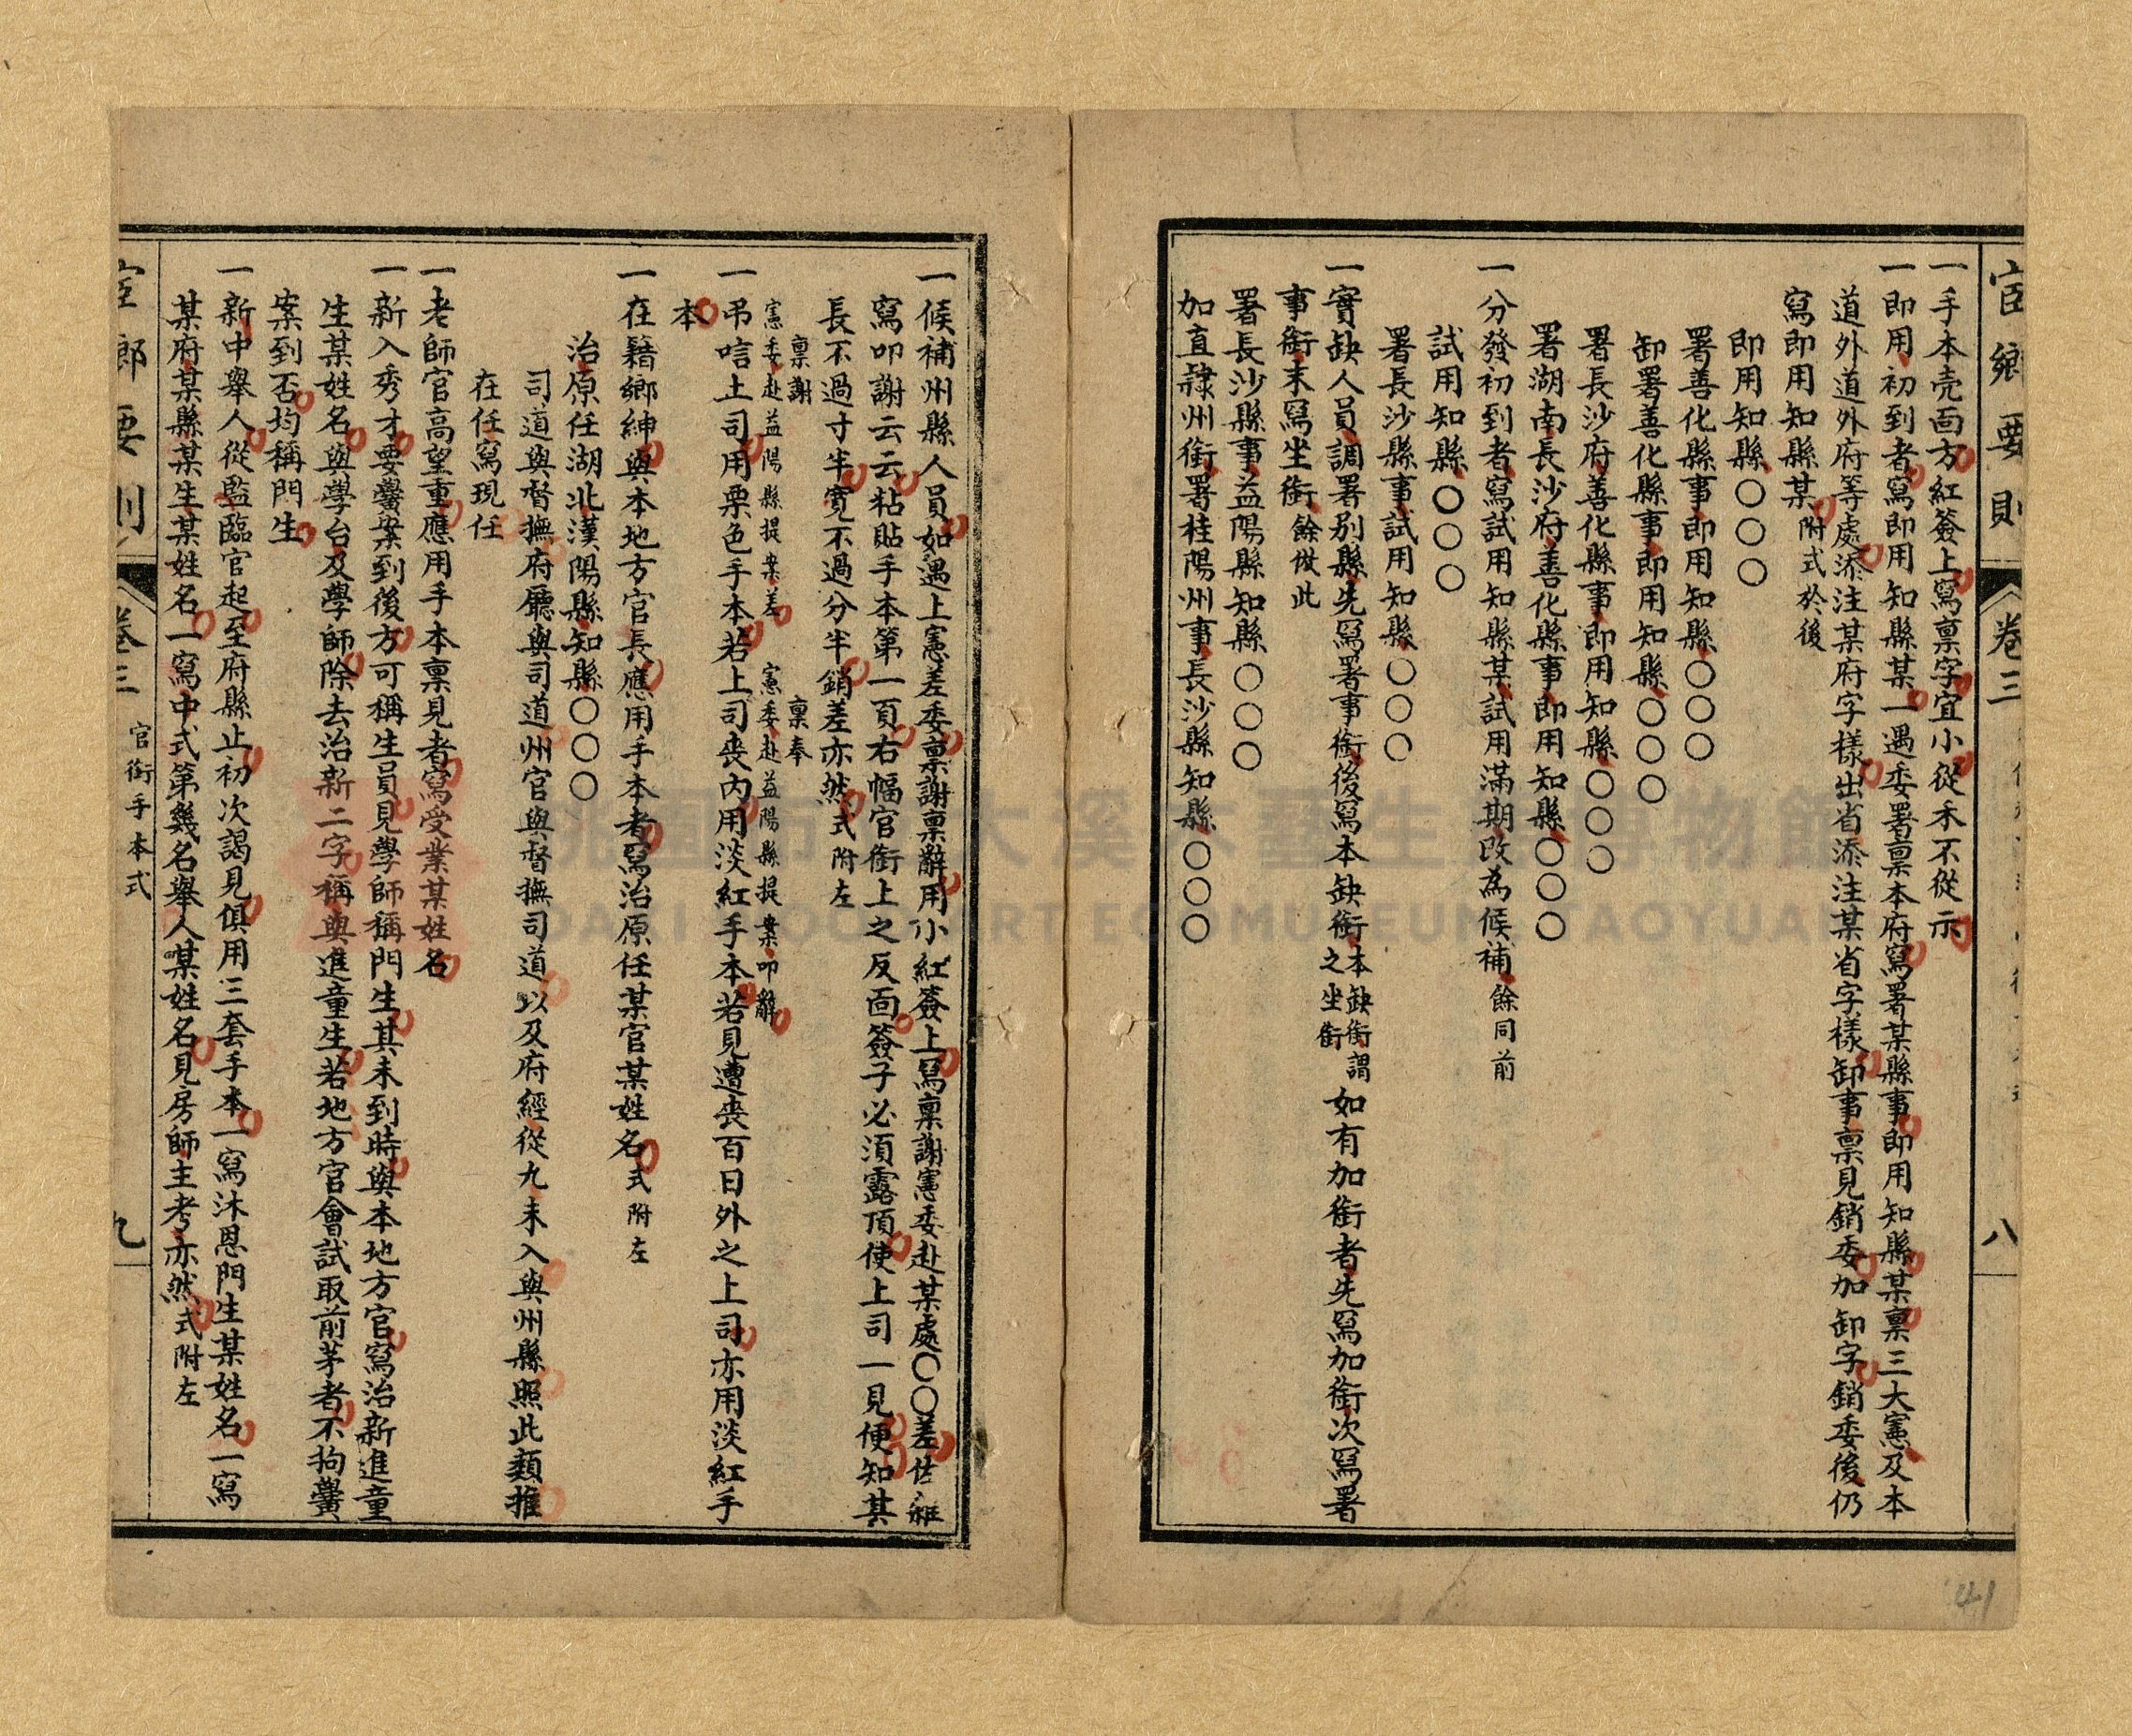 宦鄉要則
卷三
八
一手本壳面方紅簽上寫禀字宜小從禾不從示
一即用初到者寫即用知縣某一遇委署禀本府寫署某縣事即用知縣某禀三大憲及本
道外道外府等處添注某府字樣出省添注某省字樣卸事禀見銷委加卸字銷委後仍
寫即用知縣某附式於後
即用知縣〇〇〇
署善化縣事即用知縣〇〇〇
卸署善化縣事即用知縣〇〇〇
署長沙府善化縣事即用知縣〇〇〇
署湖南長沙府善化縣事即用知縣〇〇〇
一分發初到者寫試用知縣某試用滿期改為候補餘同前
試用知縣〇〇〇
署長沙縣事試用知縣〇〇〇
一實缺人員調署別縣先寫署事銜後寫本缺銜本缺銜謂之坐銜如有加銜者先寫加銜次寫署
事銜末寫坐銜餘倣此
署長沙縣事益陽縣知縣〇〇〇
加直隸州銜署桂陽州事長沙縣知縣〇〇〇
一候補州縣人員如遇上憲差委禀謝禀辭用小紅簽上寫禀謝憲委赴某處〇〇差佐雜
寫叩謝云云粘貼手本第一頁右幅官銜上之反面簽子必須露頂使上司一見便知其
長不過寸半寬不過分半銷差亦然式附左
禀謝
憲委赴益陽縣提案差
禀奉
憲委赴益陽縣提案叩辭
一弔唁上司用栗色手本若上司丧內用淡紅手本若見遭丧百日外之上司亦用淡紅手
本
一在籍鄉紳與本地方官長應用手本者寫治原任某官某姓名式附左
治原任湖北漢陽縣知縣〇〇〇
司道與督撫府廳與司道州官與督撫司道以及府經從九未入與州縣照此類推
在任寫現任
一老師官高望重應用手本禀見者寫受業某姓名
一新入秀才要黌案到後方可稱生員見學師稱門生其未到時與本地方官寫治新進童
生某姓名與學台及學師除去治新二字稱與進童生若地方官會試取前茅者不拘黌
案到否均稱門生
一新中舉人從監臨官起至府縣止初次謁見俱用三套手本一寫沐恩門生某姓名一寫
某府某縣某生某姓名一寫中式第幾名舉人某姓名見房師主考亦然式附左
宦鄉要則
卷三
官銜手本式
九
41
大溪木藝生態博物館
DAXI WOOD ART ECOMUSEUM TAOYUAN